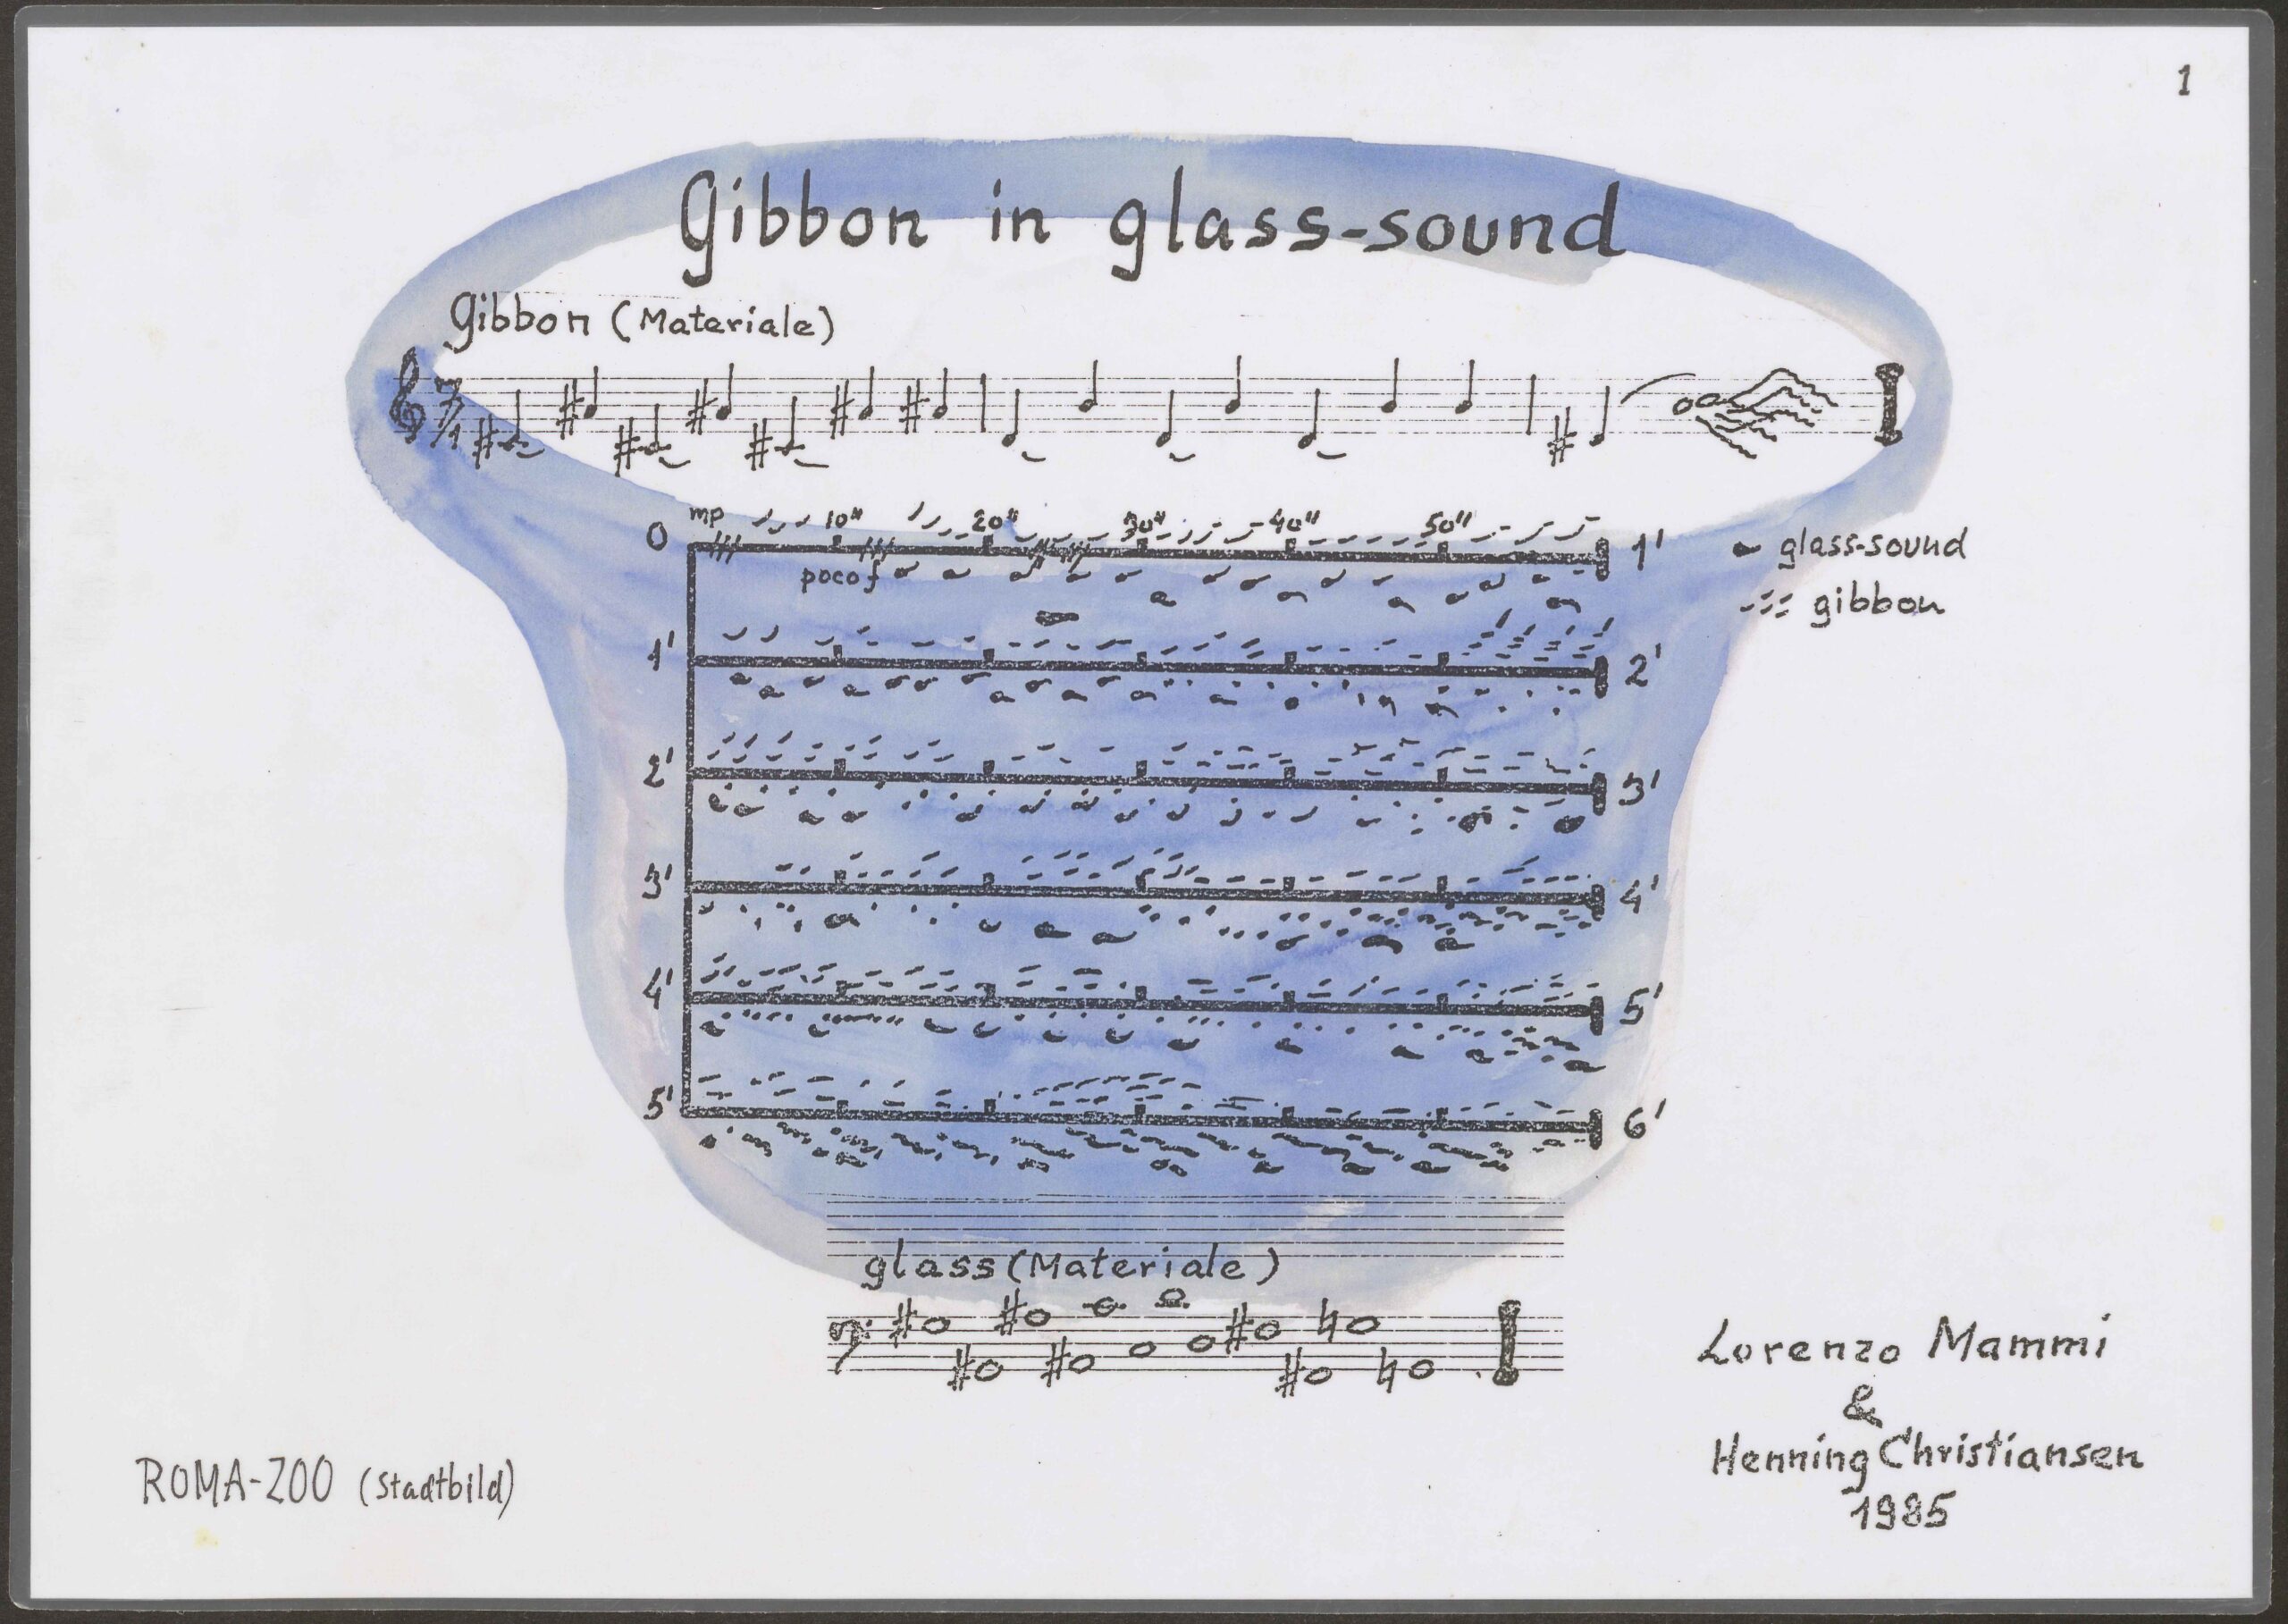 1
Gibbon in glass-sound
Gibbon (Materiale)
7/1
mp 10" 20" 30" 40" 50"
0 1'
poco f
glass-sound
gibbon
1' 2'
2' 3'
3' 4'
4' 5'
5' 6'
glass (Materiale)
Lorenzo Mammi
&
Henning Christiansen
1985
ROMA-ZOO (Stadtbild)